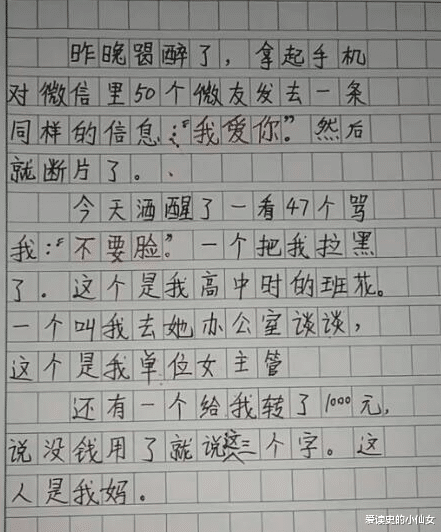 昨晚喝醉了，拿起手机
对微信里50个微友发去一条
同样的信息：“我爱你”。然后
就断片了。、
今天酒醒了一看47个骂
我：“不要脸”。一个把我拉黑
了．这个是我高中时的班花。
一个叫我去她办公室谈谈，
这个是我单位女主管
还有一个给我转了1000元，
说没钱用了就说这三个字。这
人是我妈。
爱读史的小仙女